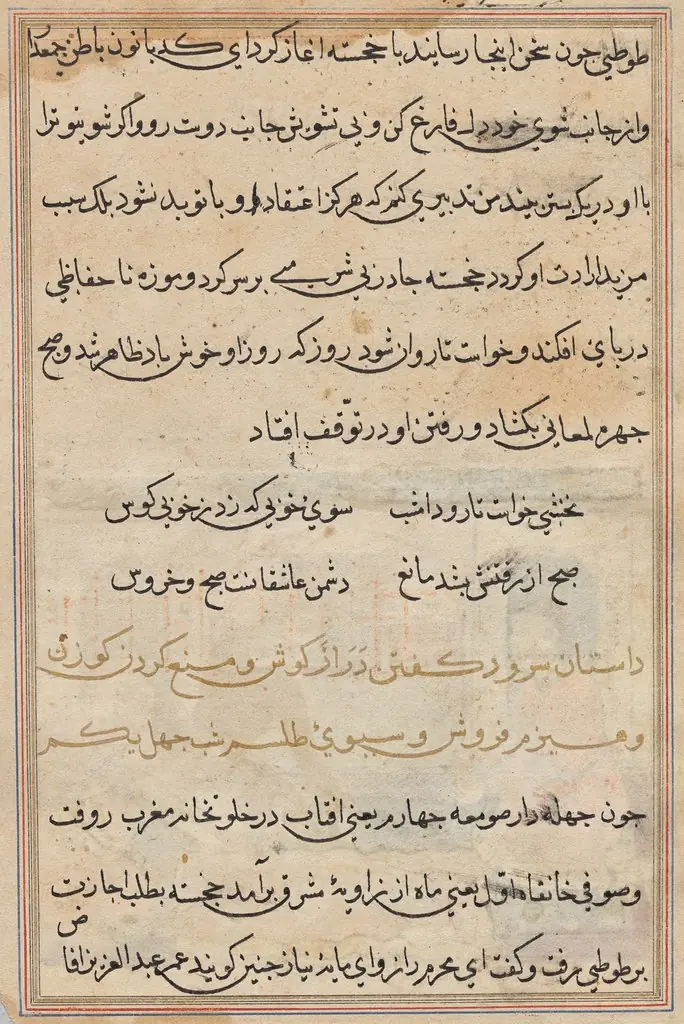 طوطي جون سخن اينجا رسانيد با خجسته اغاز كرد اي كدبانون باطن جمعدار
و از جانب شوي خود دل فارغ كن و بي تشويش جانب دوست رو و اكر شوي تو ترا
با او در يك بستر بيند من تدبيري كنم كه هركز اعتقاد او با تو بد نشود بلك سبب
مزيد ارادت او كردد خجسته جادر بي شرمي بر سر كرد و موزه نا حفاظي
در پاي افكند و خواست تا روان شود روز كه روز او خوش باد ظاهر شد و صبح
جهره لمعاني بكشاد و رفتن او در توّقف افتاد
نخشبي خواست تا رود امشب سوي خوبي كه زد ز خوبي كوس
صبح از رفتنش بشد مانع دشمن عاشقانست صبح و خروس
داستان سرود كفتن دَرَازكوش و منع كردن كوزن
و هيزم فروش و سبوئ طلسم شب جهل يكم
جون جهله دار صومعه جهارم يعني افتاب در خلوتخانه مغرب رو فت
و صوفي خانقاه اوّل يعني ماه از زاويهٔ مشرق برآمد خجسته بطلب اجازت
بر طوطي رفت و كفت اي محرم راز و اي مايهٔ نياز جنين كويند عمر عبد العزيز افا
ض